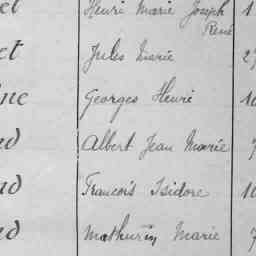 et Henri Marie Joseph 1
René
et Jules Marie 27
ne Georges Henri 10
nd Albert Jean Marie 7
nd Francois Isidore 10
nd Mathurin Marie 7